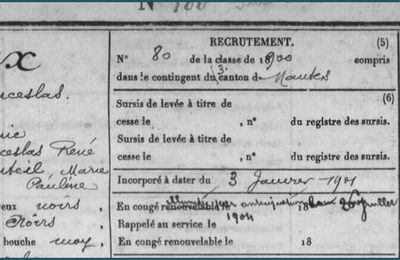 RECRUTEMENT. (5)
N° 80 de la classe de 1900 compris
dans le contingent du 3. canton de Nantes
(6)
Sursis de levée à titre de
cesse le , n° du registre des sursis.
Sursis de levée à titre de
cesse le , n° du registre des sursis.
Incorporé à dater du 3 Janvier 1901
En congé renouvelable le 18
1904
Rappelé au service le
En congé renouvelable le 18
ceslas.
ceslas René
Marie
Pauline
eux noirs ,
bouche moy,